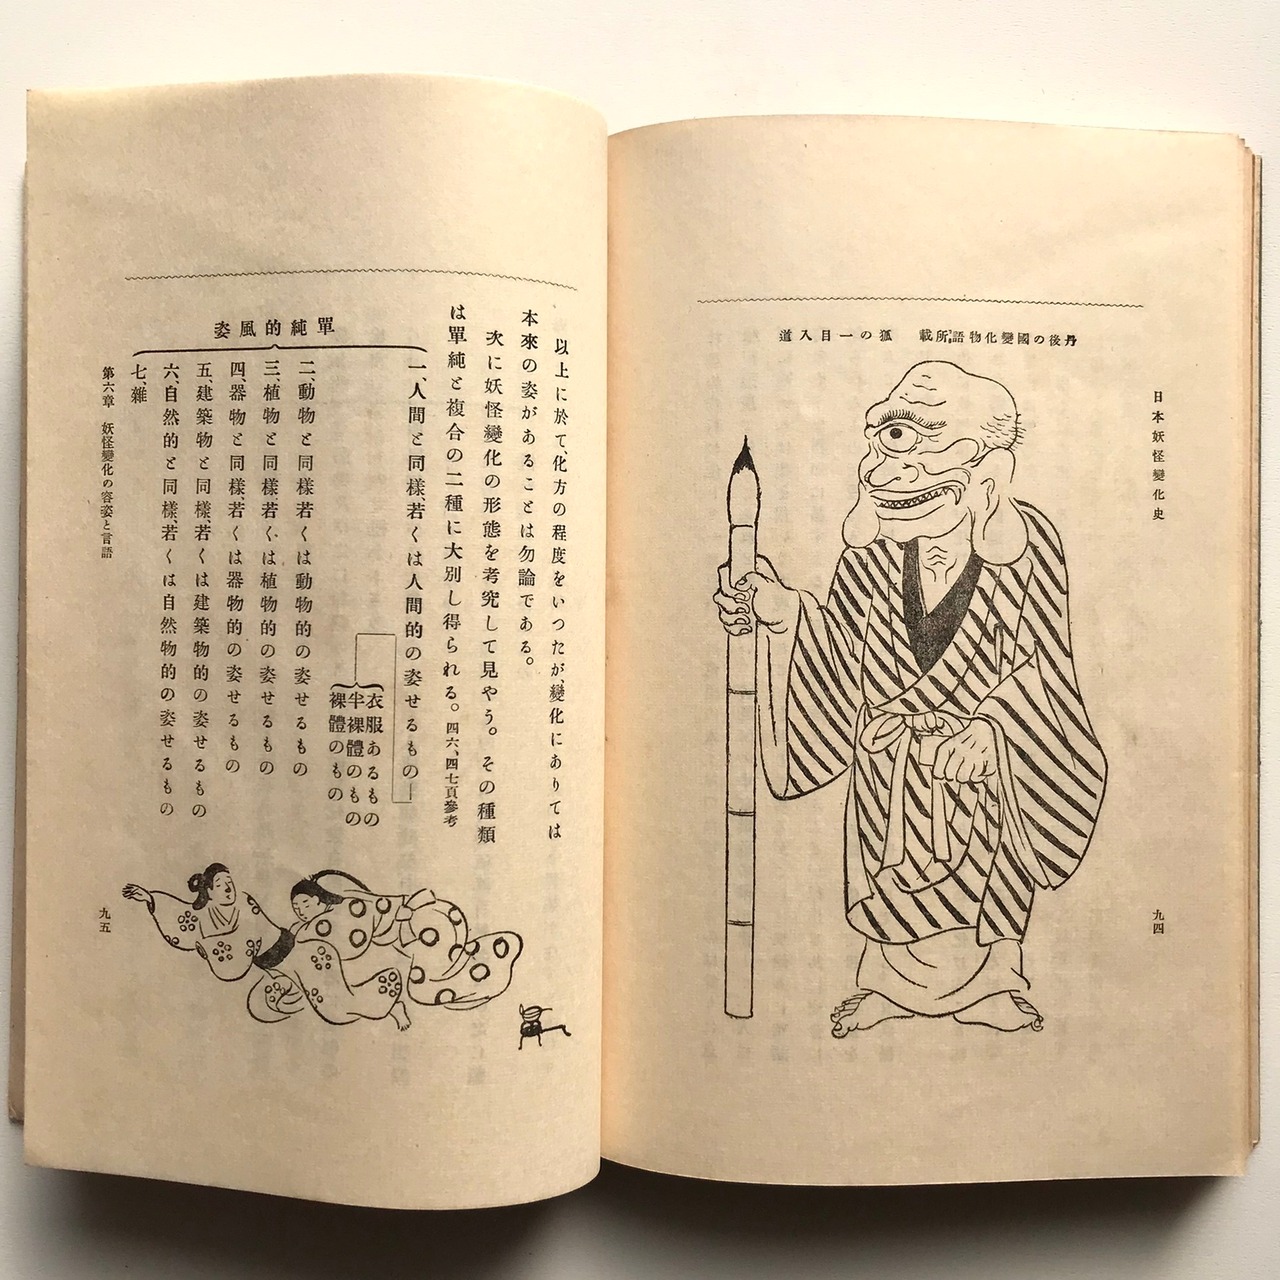 日本妖怪變化史
丹後の國變化物語所載　狐の一目入道
九四
以上に於て、化方の程度をいつたが、變化にありては
本來の姿があることは勿論である。
次に妖怪變化の形態を考究して見やう。その種類
は單純と複合の二種に大別し得られる。四六、四七頁參考
單純的風姿
一、人間と同樣、若くは人間的の姿せるもの
衣服あるもの
半裸體のもの
裸體のもの
二、動物と同樣、若くは動物的の姿せるもの
三、植物と同樣、若くは植物的の姿せるもの
四、器物と同樣、若くは器物的の姿せるもの
五、建築物と同樣、若くは建築物的の姿せるもの
六、自然的と同樣、若くは自然物的の姿せるもの
七、雜
第六章　妖怪變化の容姿と言語
九五